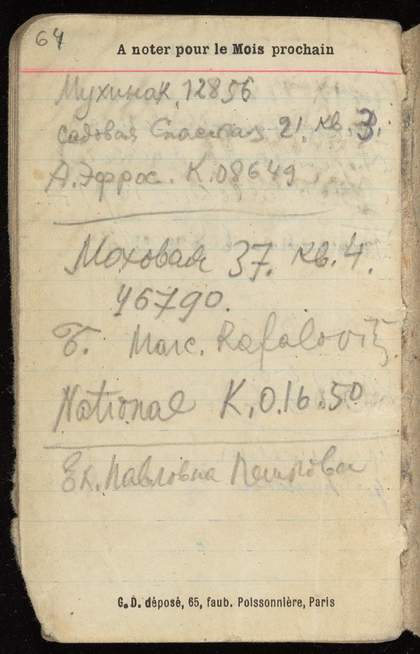 64
A noter pour le Mois prochain
Мухинак, 12856
садовая Спасская 21. кв. 3.
А. Эфрос. К.08649
Моховая 37. кв. 4.
46790.
Б. Marc. Rafalovitz
National К.0.16.50
Ек. Павловна
G. D. déposé, 65, faub. Poissonnière, Paris